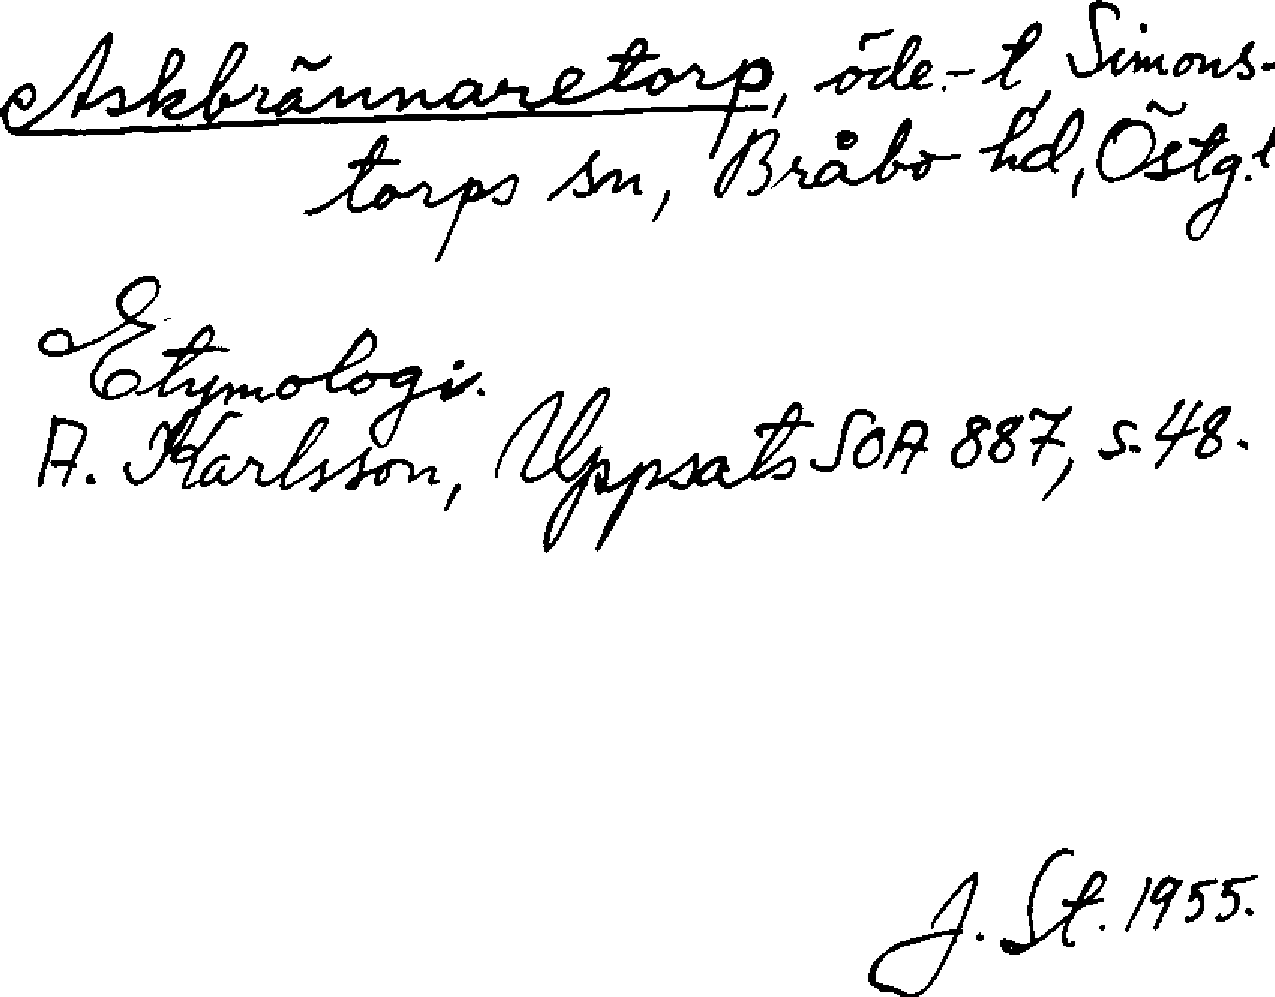 Askbrännaretorp, öde.-t, Simons-
torps sn, Bråbo hd, Östg.l
Etymologi.
A. Karlsson, Uppsats SOA 887, s. 48.
J. St. 1955.